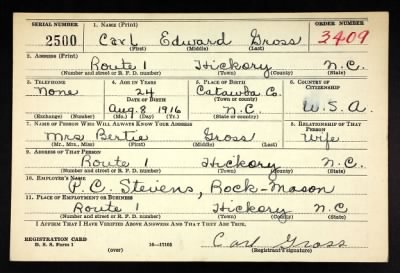 SERIAL NUMBER 1. NAME (Print) ORDER NUMBER
2500 Carl Edward Gross 3409
(First) (Middle) (Last)
2. ADDRESS (Print)
Route 1 Hickory N.C.
(Number and street or R. F. D. number) (Town) (County) (State)
3. TELEPHONE 4. AGE IN YEARS 5. PLACE OF BIRTH 6. COUNTRY OF CITIZENSHIP
None 24 Catawba Co.
DATE OF BIRTH (Town or county)
Aug. 8 1916 N.C. U.S.A.
(Exchange) (Number) (Mo.) (Day) (Yr.) (State or country)
7. NAME OF PERSON WHO WILL ALWAYS KNOW YOUR ADDRESS 8. RELATIONSHIP OF THAT PERSON
Mrs Bertie Gross Wife
(Mr., Mrs., Miss) (First) (Middle) (Last)
9. ADDRESS OF THAT PERSON
Route 1 Hickory N.C.
(Number and street or R. F. D. number) (Town) (County) (State)
10. EMPLOYER'S NAME
P. C. Stevens, Rock-Mason
11. PLACE OF EMPLOYMENT OR BUSINESS
Route 1 Hickory N.C.
(Number and street or R. F. D. number) (Town) (County) (State)
I AFFIRM THAT I HAVE VERIFIED ABOVE ANSWERS AND THAT THEY ARE TRUE.
REGISTRATION CARD
D. S. S. Form 1 (over) 16-17105
Carl Gross
(Registrant's signature)